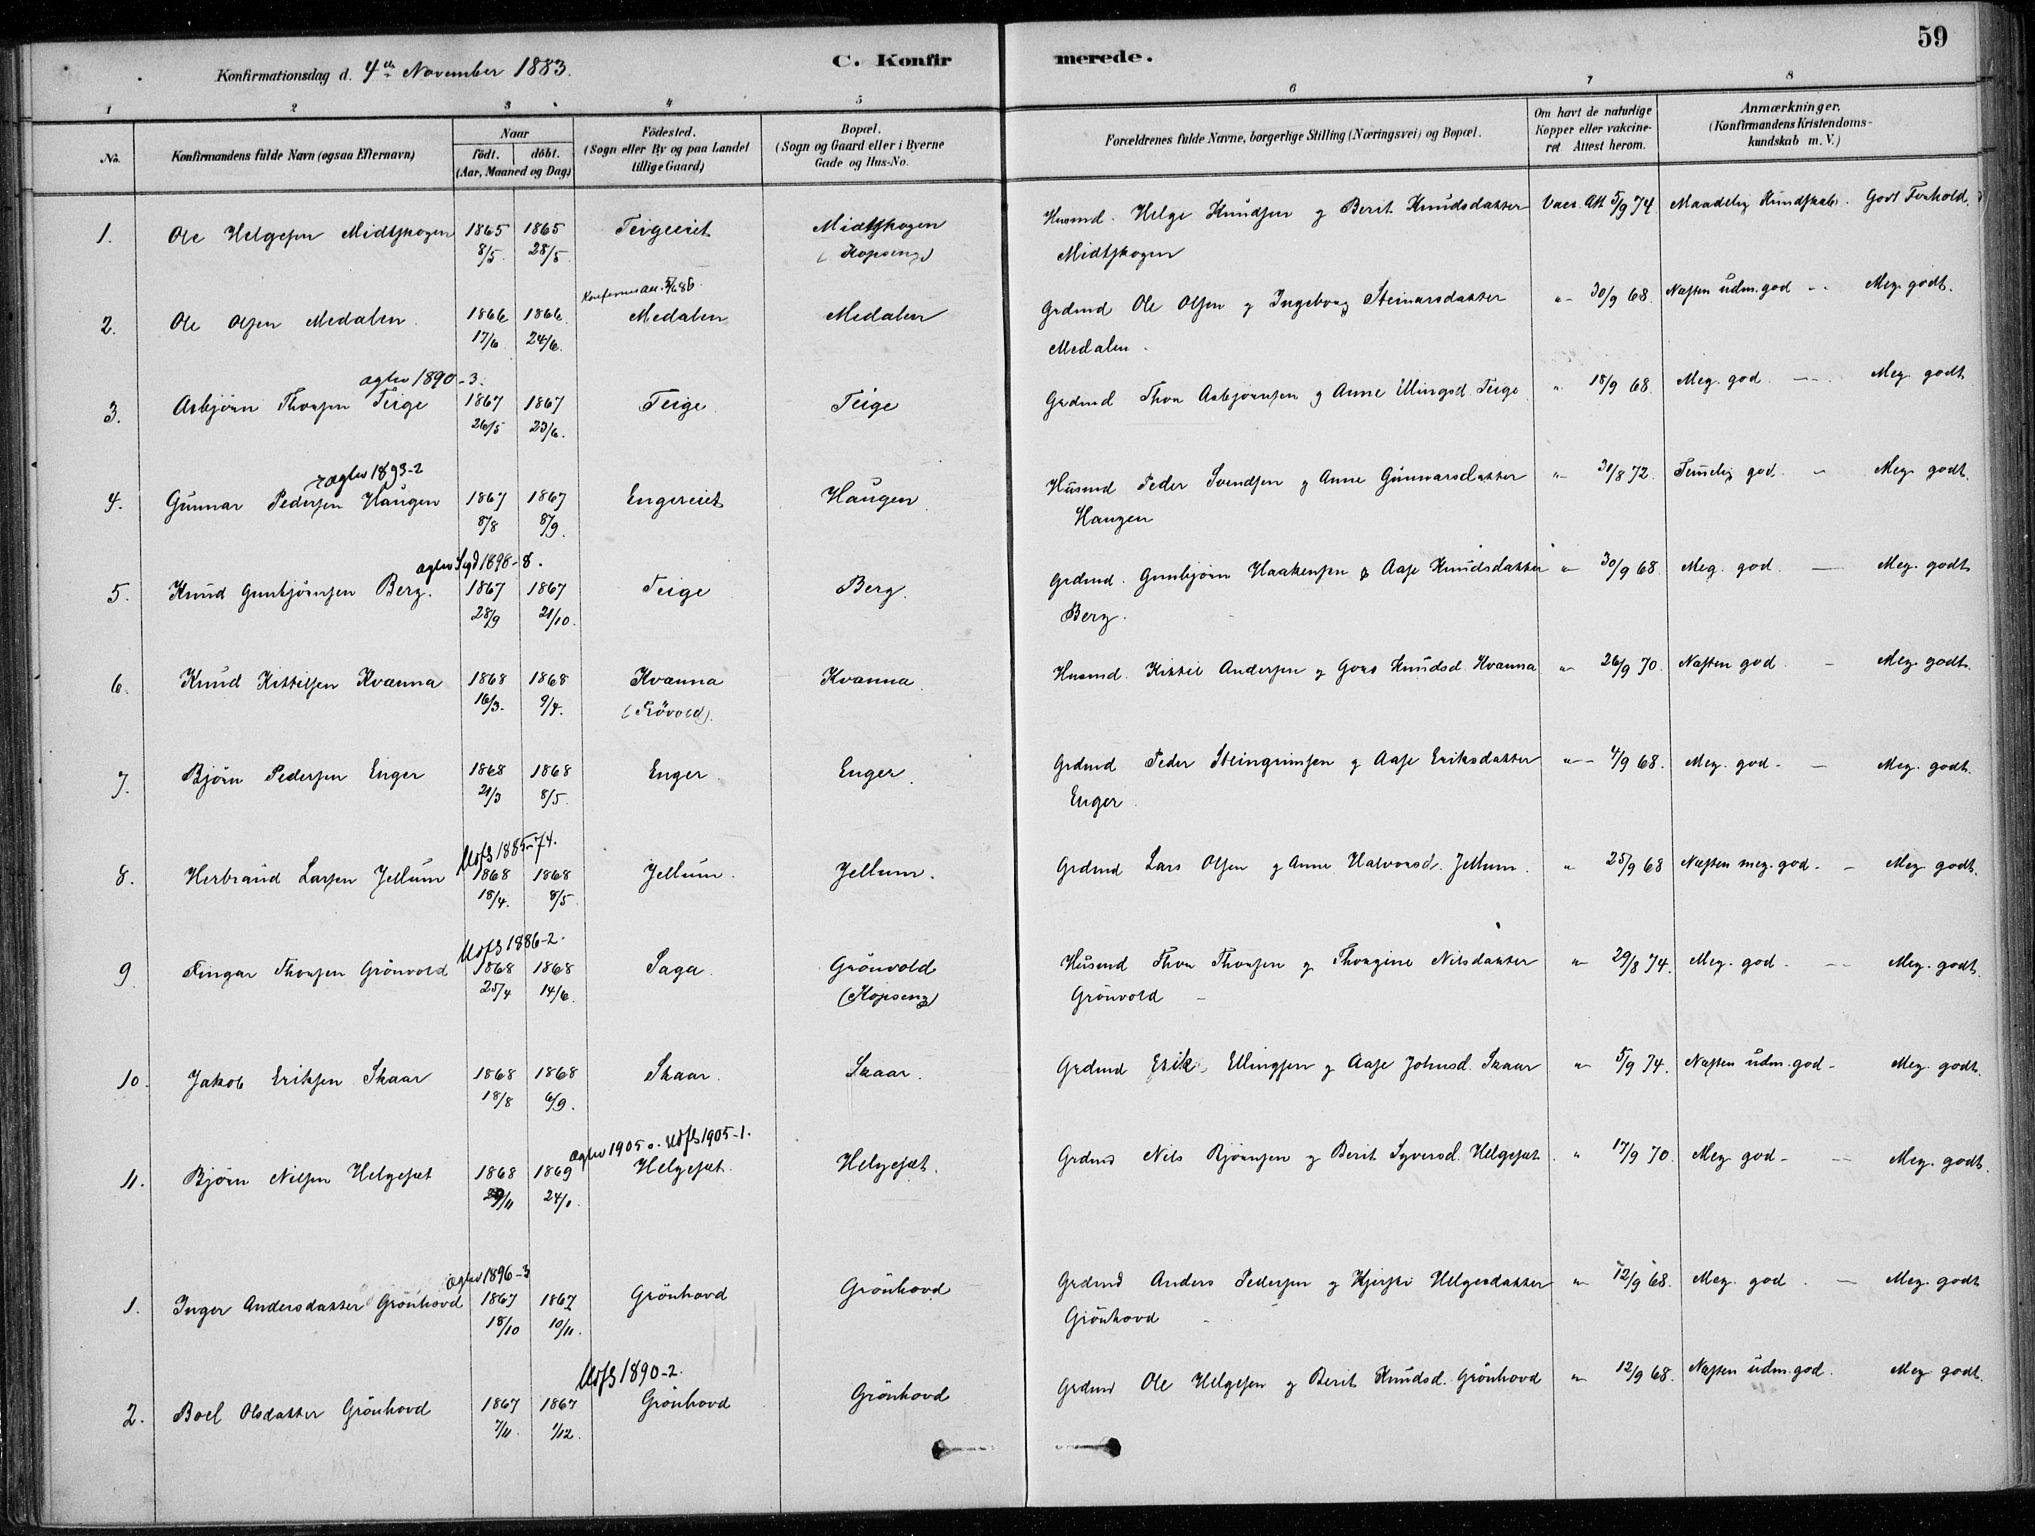 59
Konfirmationsdag d. 4de November 1883.
C. Konfirmerede.
1 2 3 4 5 6 7 8
No.
Konfirmandens fulde Navn (ogsaa Efternavn)
Naar
födt. döbt.
(Aar, Maaned og Dag)
Födested.
(Sogn eller By og paa Landet
tillige Gaard)
Bopæl.
(Sogn og Gaard eller i Byerne
Gade og Hus-No.
Forældrenes fulde Navne, borgerlige Stilling (Næringsvei) og Bopæl.
Om havt de naturlige
Kopper eller vakcine-
ret Attest herom.
Anmærkninger.
(Konfirmandens Kristendoms-
kundskab m. V.)
1. Ole Helgesen Midtskogen 1865 1865 Teigeeiet Midtskogen Husmd. Helge Knudsen g Berit Knudsdatter Vacc. Att 5/9 74 Maadelig Kundskab. Godt Forhold.
8/5. 28/5. (Kopseng) Midtskogen
2. Ole Olsen Medalen. 1866 1866. Medalen Medalen Grdmd Ole Olsen g Ingeborg Steinarsdatter " 30/9 68. Næsten udm. god - Meg. godt.
17/6 24/6. Medalen.
aglev 1890-3.
3. Asbjörn Thorsen Teige 1867 1867 Teige. Teige Grdmd Thor Asbjörnsen g Anne Ellingsd. Teige " 18/9 68. Meg. god. - Meg. godt
26/5 23/6.
aglev 1893-2
4. Gunnar Pedersen Haugen 1867 1867 Engereiet Haugen Husmd Peder Svendsen g Anne Gunnarsdatter " 31/8 72. Temelig god. - Meg. godt.
8/8 8/9. Haugen
1898-8.
5. Knud Gunbjörnsen Berg. 1867 1867 Teige Berg. Grdmd. Gunbjörn Haakensen g Aase Knudsdatter " 30/9 68. Meg. god. - Meg. godt
28/9 21/10. Berg.
6. Knud Kittilsen Kvanna 1868 1868 Kvanna Kvanna. Husmd. Kittil Andersen g Goro Knudsd. Kvanna " 26/9 70. Næsten god. - Meg. godt.
16/3. 9/4.
7. Björn Pedersen Enger 1868 1868 Enger. Enger. Grdmd Peder Steingrimsen g Aase Eriksdatter " 4/9 68. Meg. god. - Meg. godt.
21/3 8/5. Enger.
Udfl 1885-74.
8. Herbrand Larsen Jellum 1868 1868 Jellum. Jellum. Grdmd Lars Olsen g Anne Halvorsd. Jellum. " 25/9 68 Næsten meg. god. - Meg. godt.
18/4. 8/5.
Udfl 1886-2.
9 Fingar Thorsen Grönvold 1868 1868 Saga Grönvold Husmd Thor Thorsen g Thorgine Nilsdatter " 29/8 74. Meg. god. - Meg. godt.
25/4 14/6. (Kopseng) Grönvold
10. Jakob Eriksen Skaar 1868 1868 Skaar. Skaar. Grdmd Erik Ellingsen g Aase Johnsd. Skaar " 5/9 74. Næsten udm. god - Meg. godt.
18/8 6/9.
aglev 1905 o. Udfl 1905-1.
11. Björn Nilsen Helgeset 1868 1869 Helgeset. Helgeset. Grdmd Nils Björnsen g Berit Syversd. Helgeset. " 17/9 70. Meg god - Meg. godt.
29/11 24/1.
aglev 1896-3
1. Inger Andersdatter Grönhovd 1867 1867 Grönhovd Grönhovd Grdmd Anders Pedersen g Kjersti Helgesdatter " 12/9 68. Meg. god. - Meg. godt
18/10 10/11. Grönhovd
Udfl 1890-2.
2. Boel Olsdatter Grönhovd 1867 1867 Grönhovd Grönhovd Grdmd Ole Helgesen g Berit Knudsd. Grönhovd " 12/9 68. Næsten udm. god. Meg godt.
7/11. 1/12.